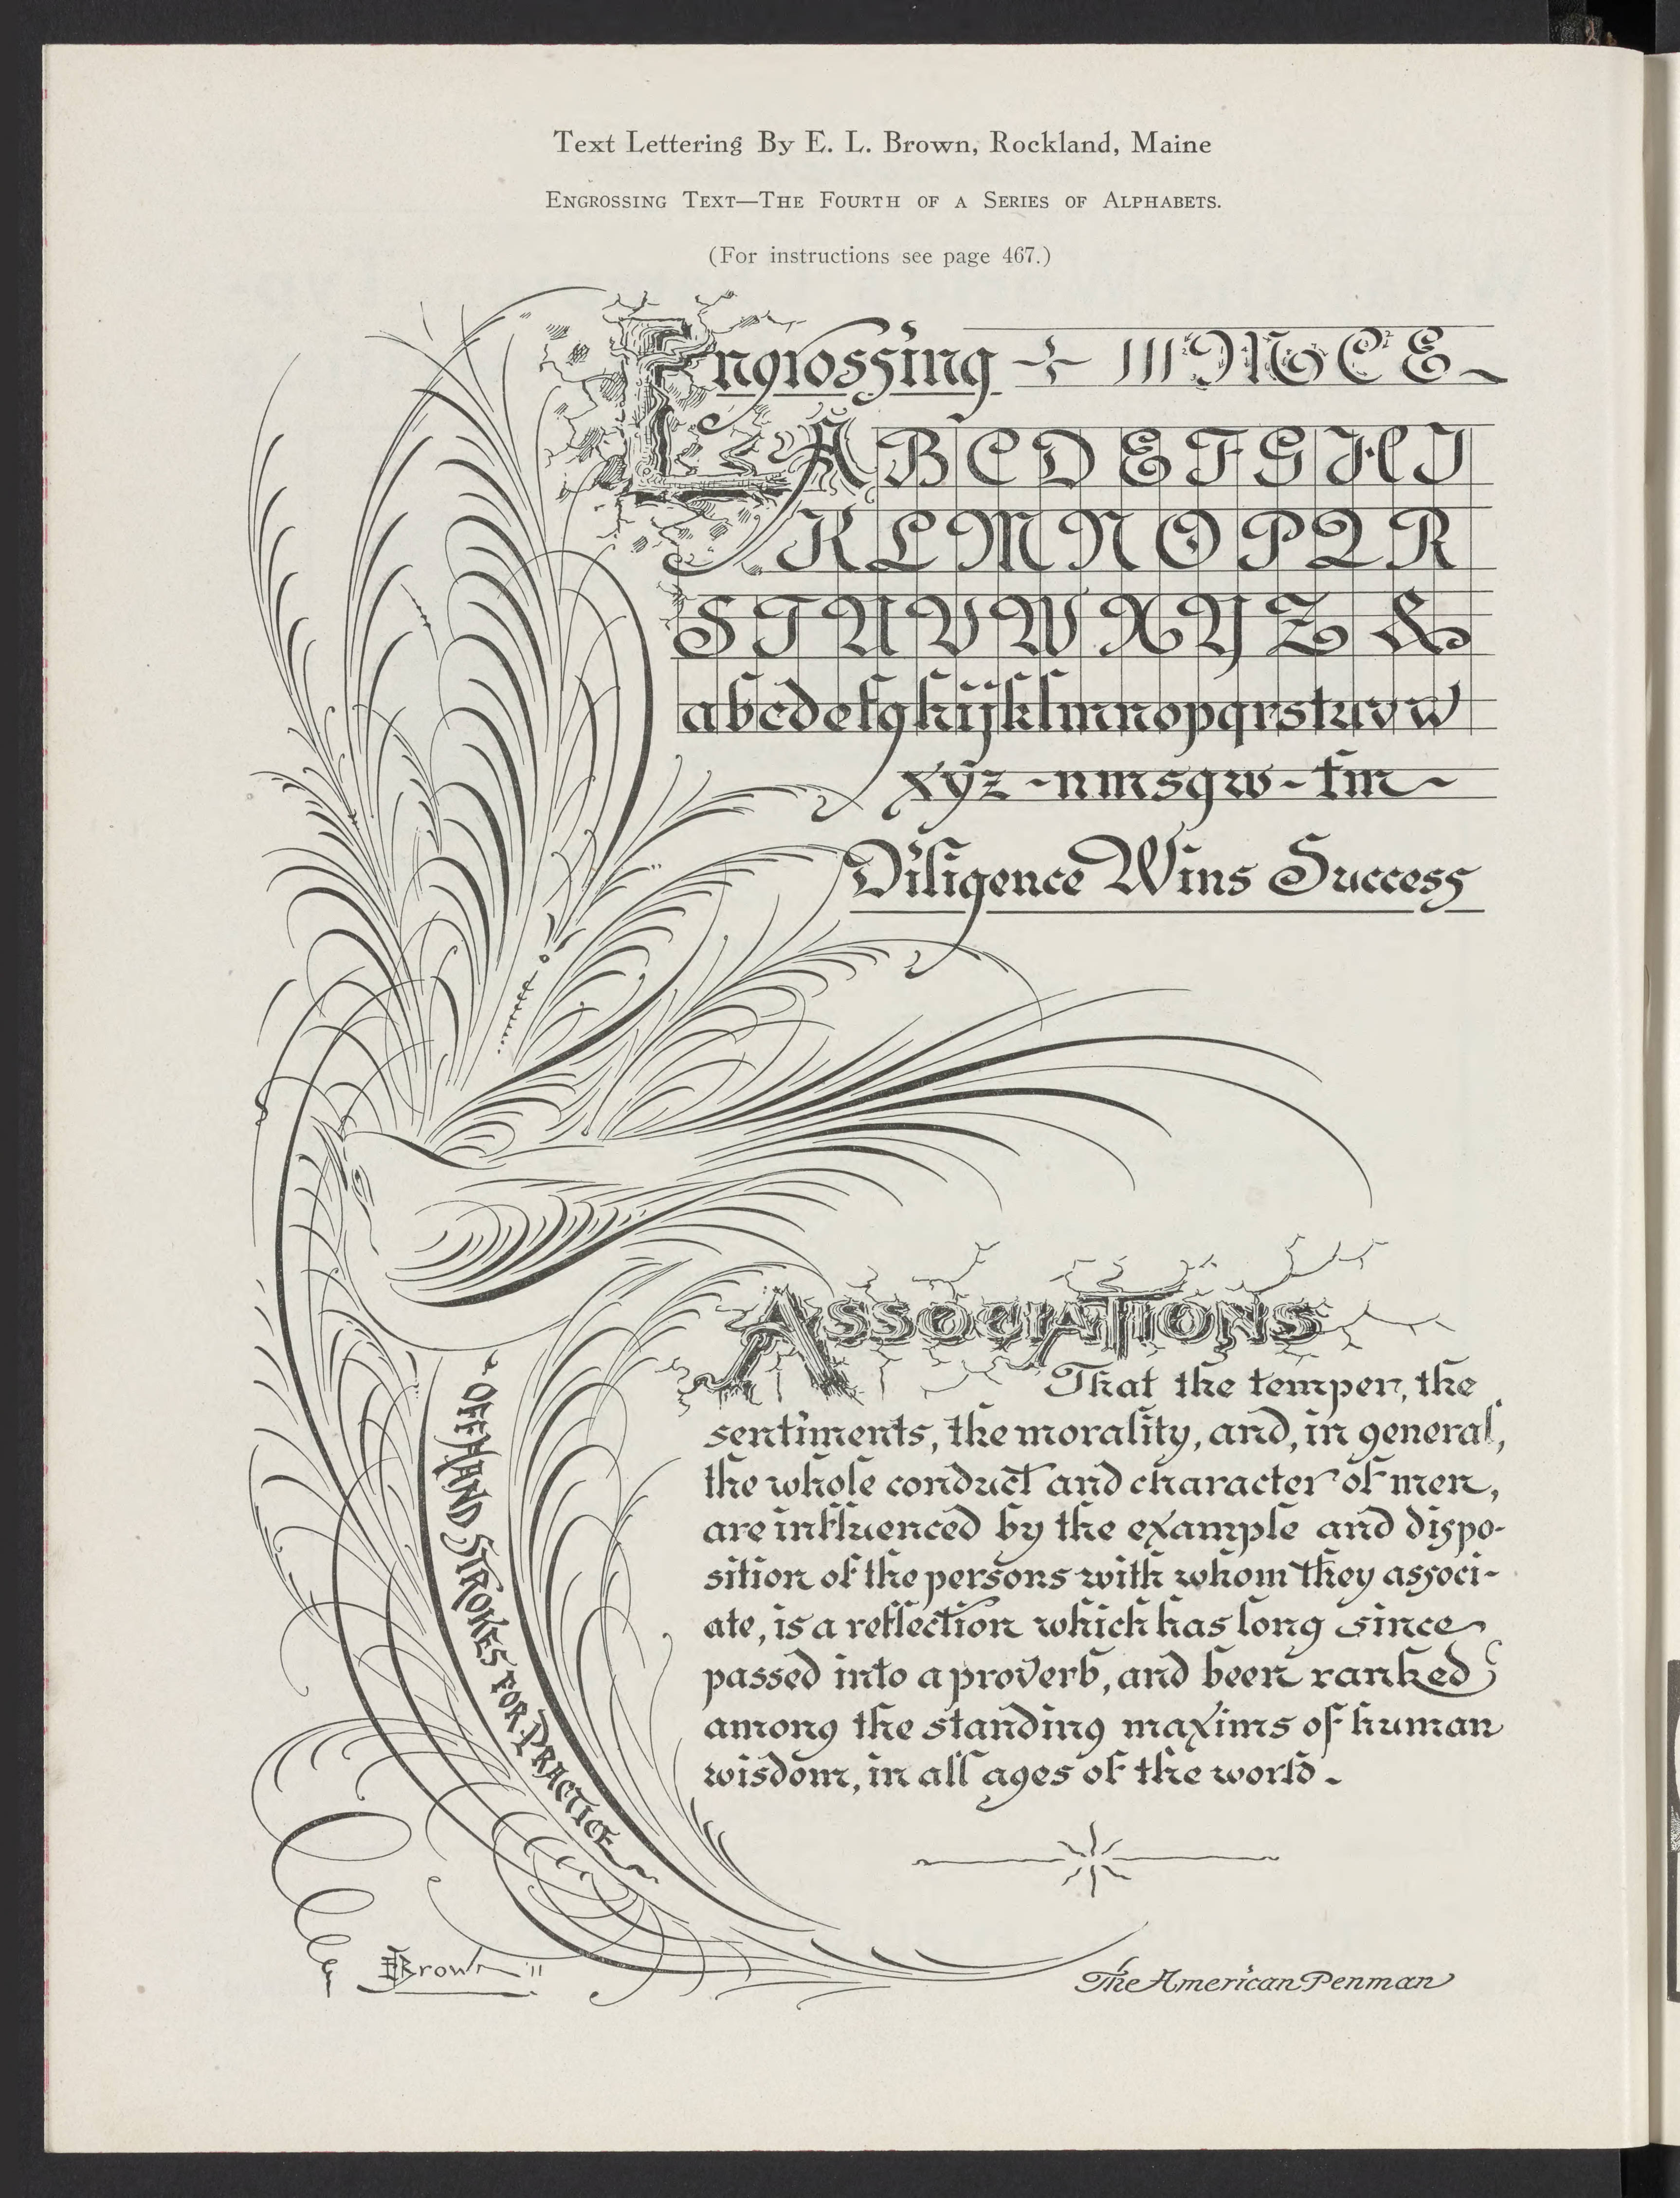 Text Lettering By E. L. Brown, Rockland, Maine
Engrossing Text—The Fourth of a Series of Alphabets.
(For instructions see page 467.)
Engrossing
A B C D E F G H I
K L M N O P Q R
S T U V W X Y Z &
abcdefghijklmnopqrstuvw
xyz - nmsgw - fm ~
Diligence Wins Success
Associations
That the temper, the
sentiments, the morality, and, in general,
the whole conduct and character of men,
are influenced by the example and dispo-
sition of the persons with whom they associ-
ate, is a reflection which has long since
passed into a proverb, and been ranked
among the standing maxims of human
wisdom, in all ages of the world.
Offhand Strokes for Practice
EL Brown '11
The American Penman